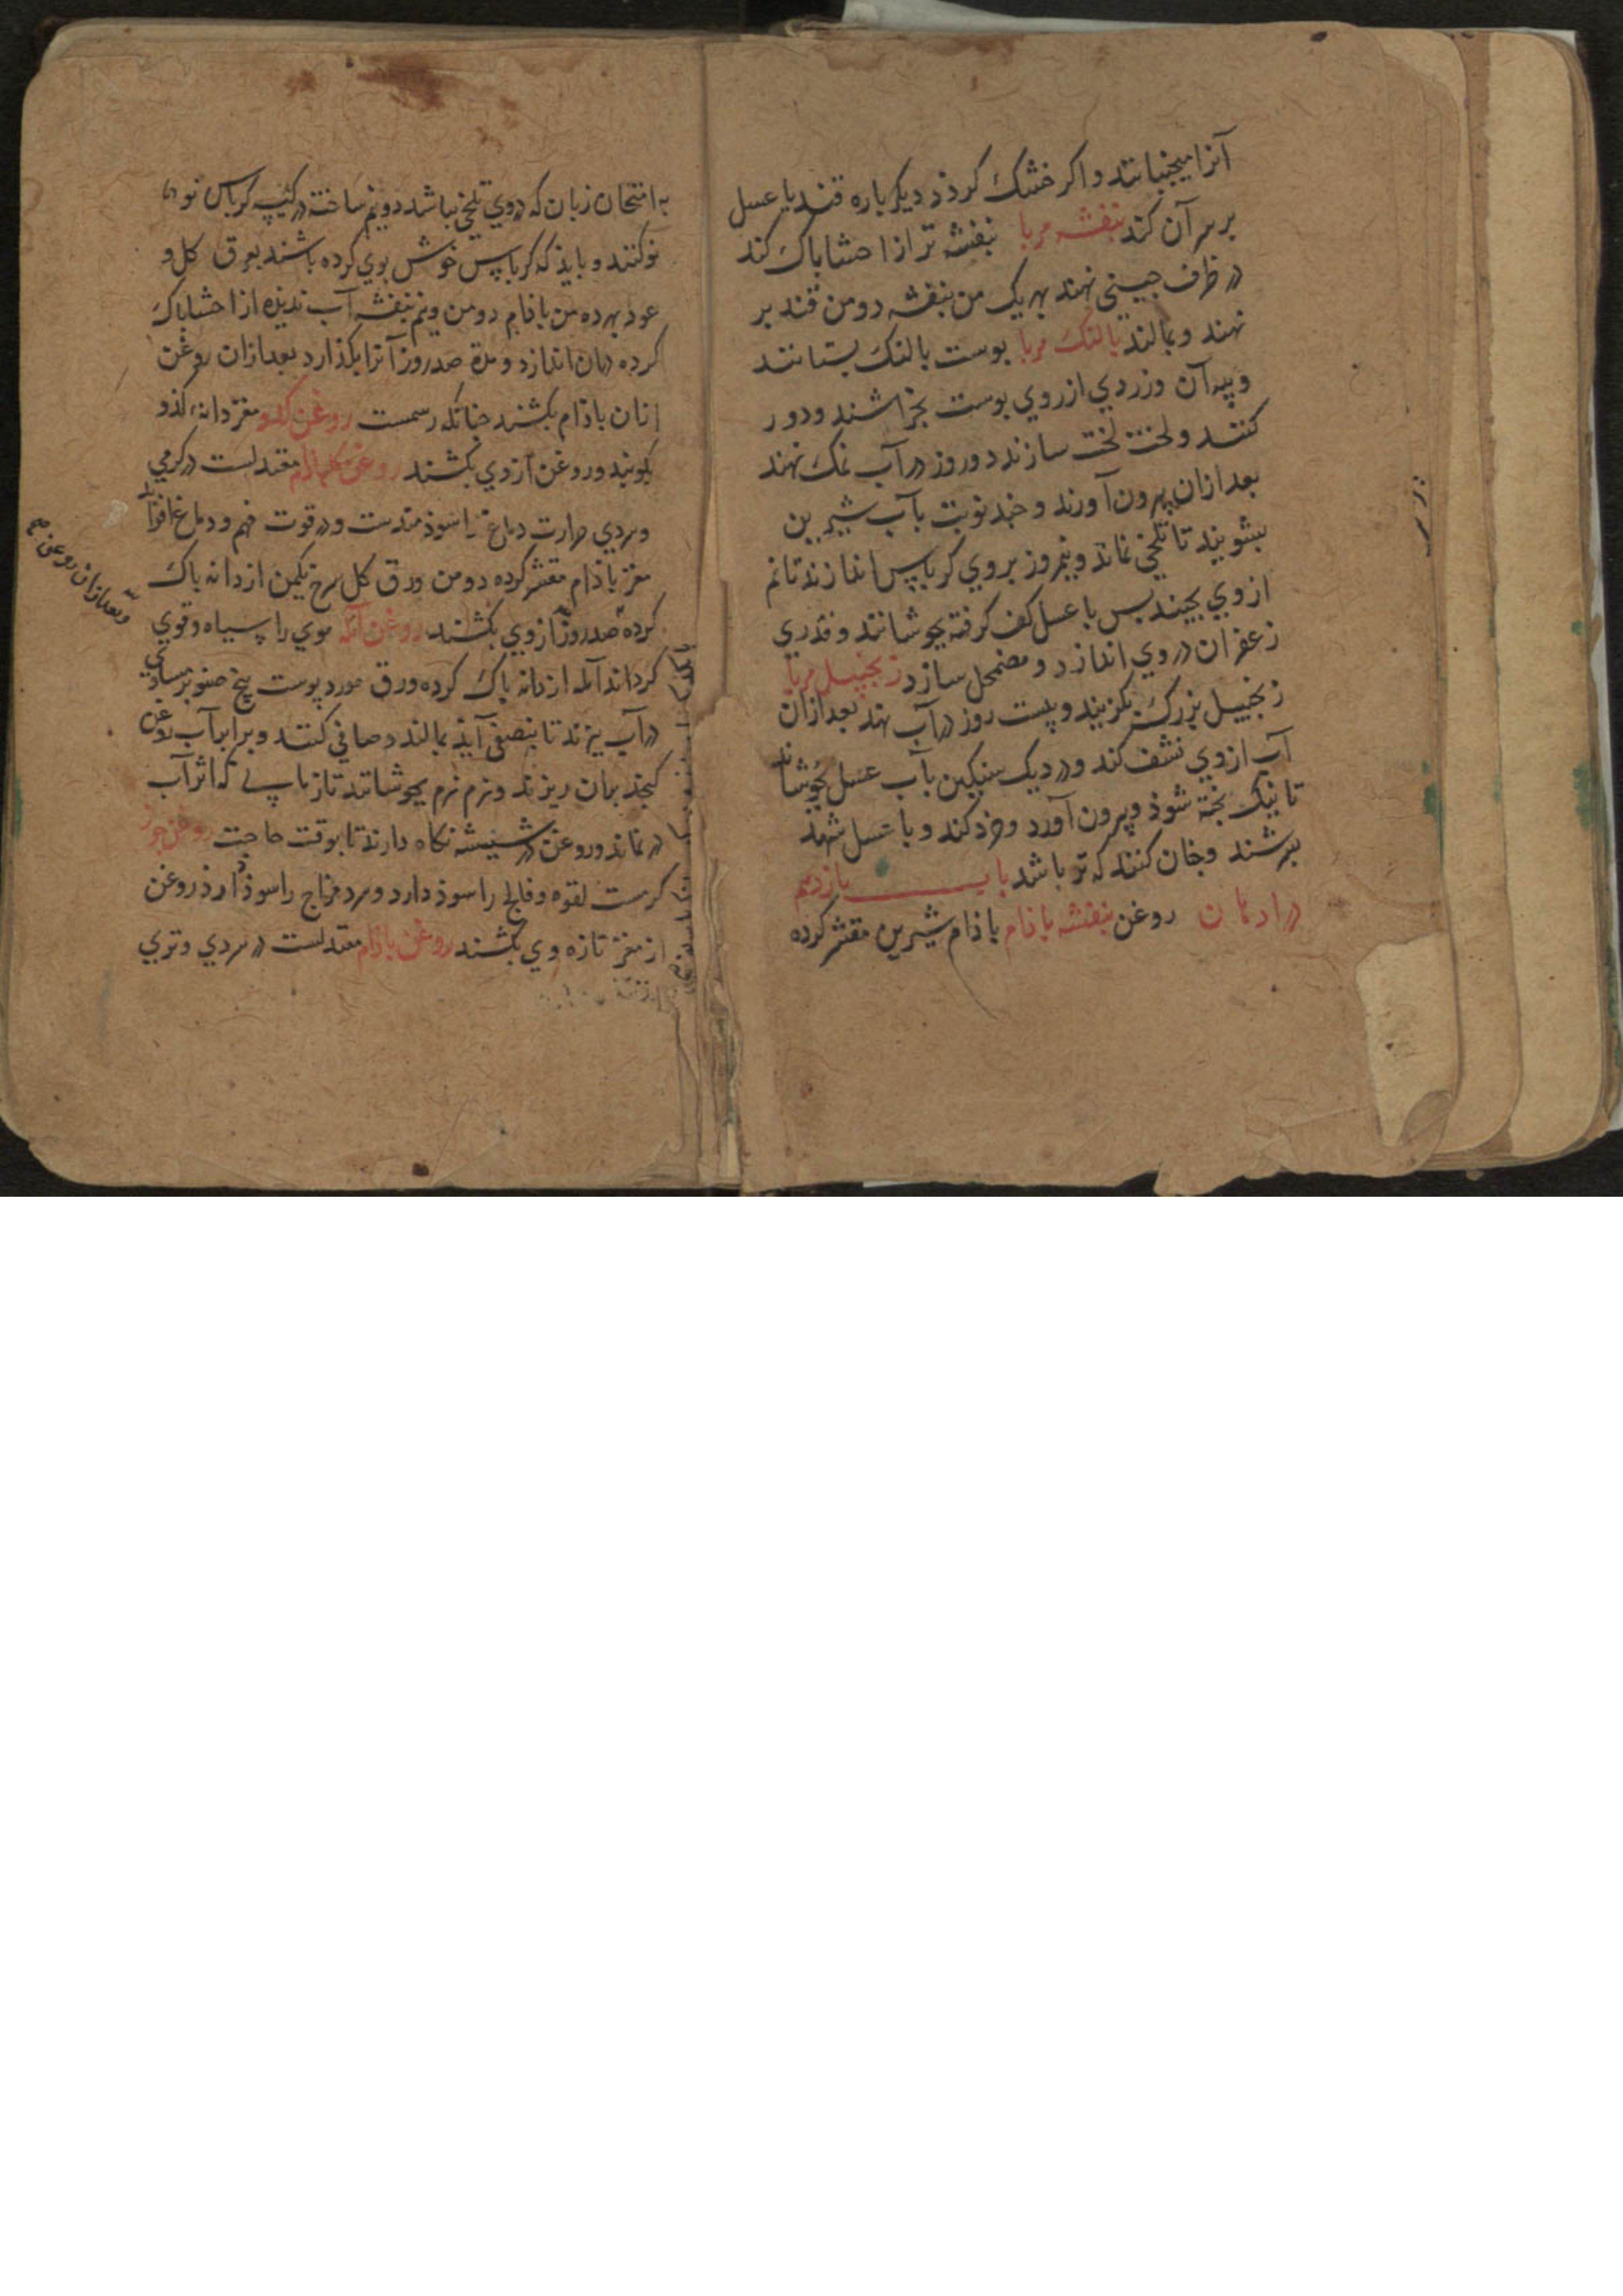 آنرا میجنبانند و اکر خشک کردد دیکر باره قند یا عسل
بر سر آن کند بنفشه مربا بنفشه تر از احشا باک کند
در ظرف جینی نهند بهر یک من بنفشه دو من قند بر
نهند و بمالند بالنک مربا بوست بالنک بستانند
و پیه آن و زردی از روی بوست بخراشند و دور
کنند و لخت لخت سازند دو روز در آب نمک نهند
بعد ازان بیرون آورند و جند نوبت بآب شیرین
بشویند تا تلخی نماند و نیمروز بر روی کرباس اندازند تا نم
از وی بجیند بس با عسل کف کرفته بجوشانند و قدری
زعفران در وی اندازد و مضمحل سازد زنجبیل مربا
زنجبیل بزرک بکزینند و بیست روز در آب نهند بعد ازان
آب از وی نشف کند و در دیک سنکین بآب عسل بجوشاند
تا نیک بخته شوذ و بیرون آورد و خرد کند و با عسل شهد
بسرشند و جنان کنند که تر باشد باب یازدهم
در ادهان روغن بنفشه باذام باذام شیرین مقشر کرده
به امتحان زبان که در وی تلخی نباشد دو نیم ساخته در کیسه کرباس نو
نو کنند و بایذ که کرباس خوش بوی کرده باشند بعرق کل و
عود بهر ده من باذام دو من و نیم بنفشه آب ندیده از احشا باک
کرده دران اندازد و مدة صد روز آنرا بکذارد بعد ازان روغن
ازان باذام بکشند جنانکه رسمست روغن کدو مغز دانه کذو
بکوبند و روغن از وی بکشند روغن معتدلست در کرمی
و سردی حرارت دماغ را سوذمندست و در قوت فهم و دماغ افزاید
مغز باذام مقشر کرده دو من ورق کل سرخ یکمن از دانه باک
کرده صد روز از وی بکشند روغن آمله موی را سیاه و قوی
کرداند آمله از دانه باک کرده ورق مورد پوست بیخ صنوبر مساوی
در آب بپزند تا بنصفی آیذ بمالند و صافی کنند و برابر آب روغن
کنجد بران ریزند و نرم نرم بجوشانند تا زمانی که اثر آب
در نماند و روغن در شیشه نکاه دارند تا بوقت حاجت روغن جوز
کرمست لقوه و فالج را سوذ دارد و سرد مزاج را سوذ دارذ روغن
از مغز تازه وی بکشند روغن باذام معتدلست در سردی و تری
و بعد ازان روغن